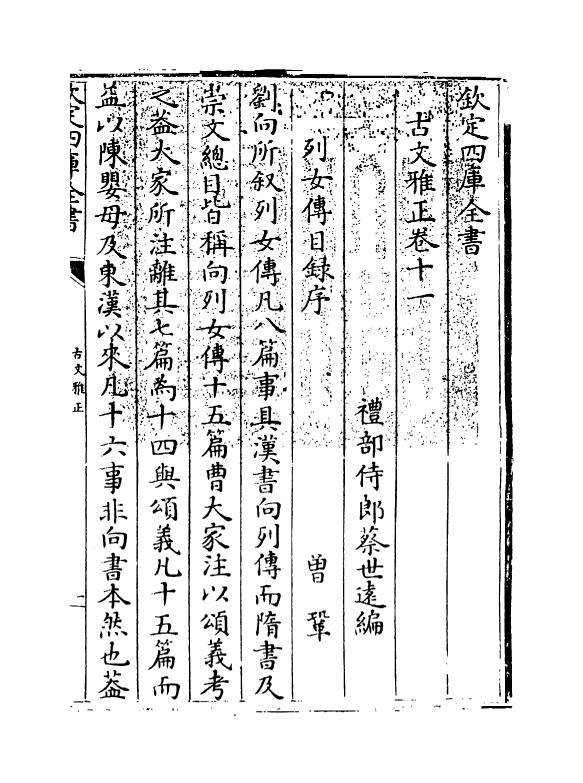 欽定四庫全書
古文雅正卷十一
禮部侍郎蔡世遠編
列女傳目録序
曽鞏
劉向所叙列女傳凡八篇事具漢書向列傳而隋書及
崇文總目皆稱向列女傳十五篇曹大家注以頌義考
之葢大家所注離其七篇為十四與頌義凡十五篇而
益以陳嬰母及東漢以來凡十六事非向書本然也葢
欽定四庫全書
古文雅正